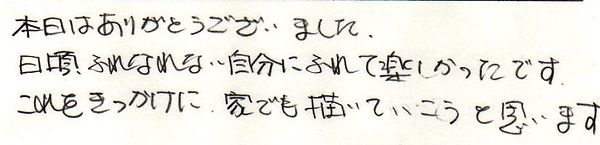 本日はありがとうございました.
日頃ふれなれない自分にふれて楽しかったです.
これをきっかけに.家でも描いていこうと思います